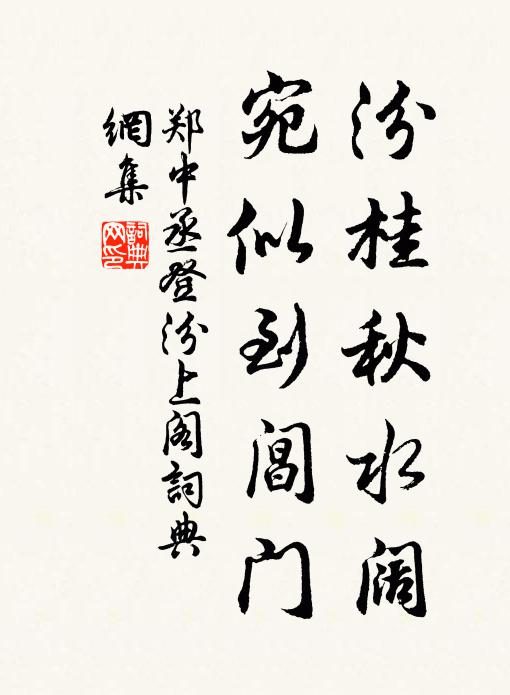 汾桂秋水阔
宛似到阊门
郑中丞登汾上阁詞典
網集
詞典
网印